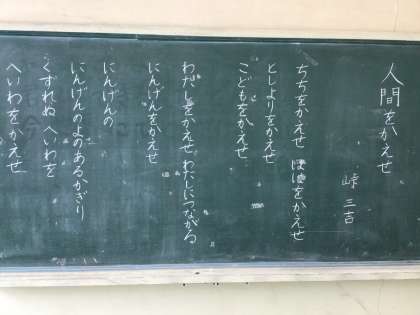 人間をかえせ
峠 三吉
ちちをかえせ ははをかえせ
としよりをかえせ
こどもをかえせ
わたしをかえせ わたしにつながる
にんげんをかえせ
にんげんの
にんげんのよのあるかぎり
くずれぬ へいわを
へいわをかえせ